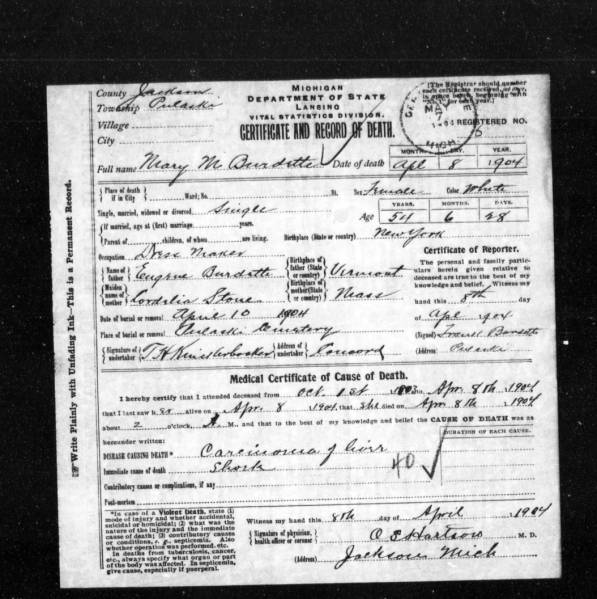 County Jackson
Township Pulaski
Village
City
MICHIGAN
DEPARTMENT OF STATE
LANSING
VITAL STATISTICS DIVISION.
CERTIFICATE AND RECORD OF DEATH.
[The Registrar should number
REGISTERED NO.
5
MONTH. DAY. YEAR.
Full name Mary M Burdette Date of death Apl 8 1904
Place of death if in City Ward; No. St. Sex Female Color White
Single, married, widowed or divorced Single
YEARS. MONTHS. DAYS.
Age 54 6 28
If married, age at (first) marriage years.
Parent of children, of whom are living. Birthplace (State or country) New York
Occupation Dress Maker
Name of father Eugene Burdette Birthplace of father (State or country) Vermont
Maiden name of mother Cordelia Stone Birthplace of mother (State or country) Mass
Date of burial or removal April 10 1904
Place of burial or removal Pulaski Cemetery
Signature of undertaker T. H. Knickerbocker Address of undertaker Concord
Certificate of Reporter.
The personal and family particulars herein given relative to deceased are true to the best of my knowledge and belief. Witness my
hand this 8th day
of Apl 1904
(Signed) Frank Burdette
(Address) Pulaski
Medical Certificate of Cause of Death.
I hereby certify that I attended deceased from Oct 1st 1903 to Apr 8th 1904
that I last saw her alive on Apr. 8 1904 that She died on Apr 8th 1904
about 2 o'clock, A. M., and that to the best of my knowledge and belief the CAUSE OF DEATH was as
hereunder written:
DURATION OF EACH CAUSE.
DISEASE CAUSING DEATH* Carcinoma of
Immediate cause of death Shock
40
Contributory causes or complications, if any
Post-mortem
*In case of a Violent Death, state (1)
mode of injury and whether accidental,
suicidal or homicidal; (2) what was the
nature of the injury and the immediate
cause of death; (3) contributory causes
or conditions, e. g., septicemia. Also
whether operation was performed, etc.
In deaths from tuberculosis, cancer,
etc., always specify what organ or part
of the body was affected. In septicemia,
give cause, especially if puerperal.
Witness my hand this 8th day of April 1904
Signature of physician, health officer or coroner O E Hartsow M. D.
(Address) Jackson Mich
Write Plainly with Unfading Ink—This is a Permanent Record.